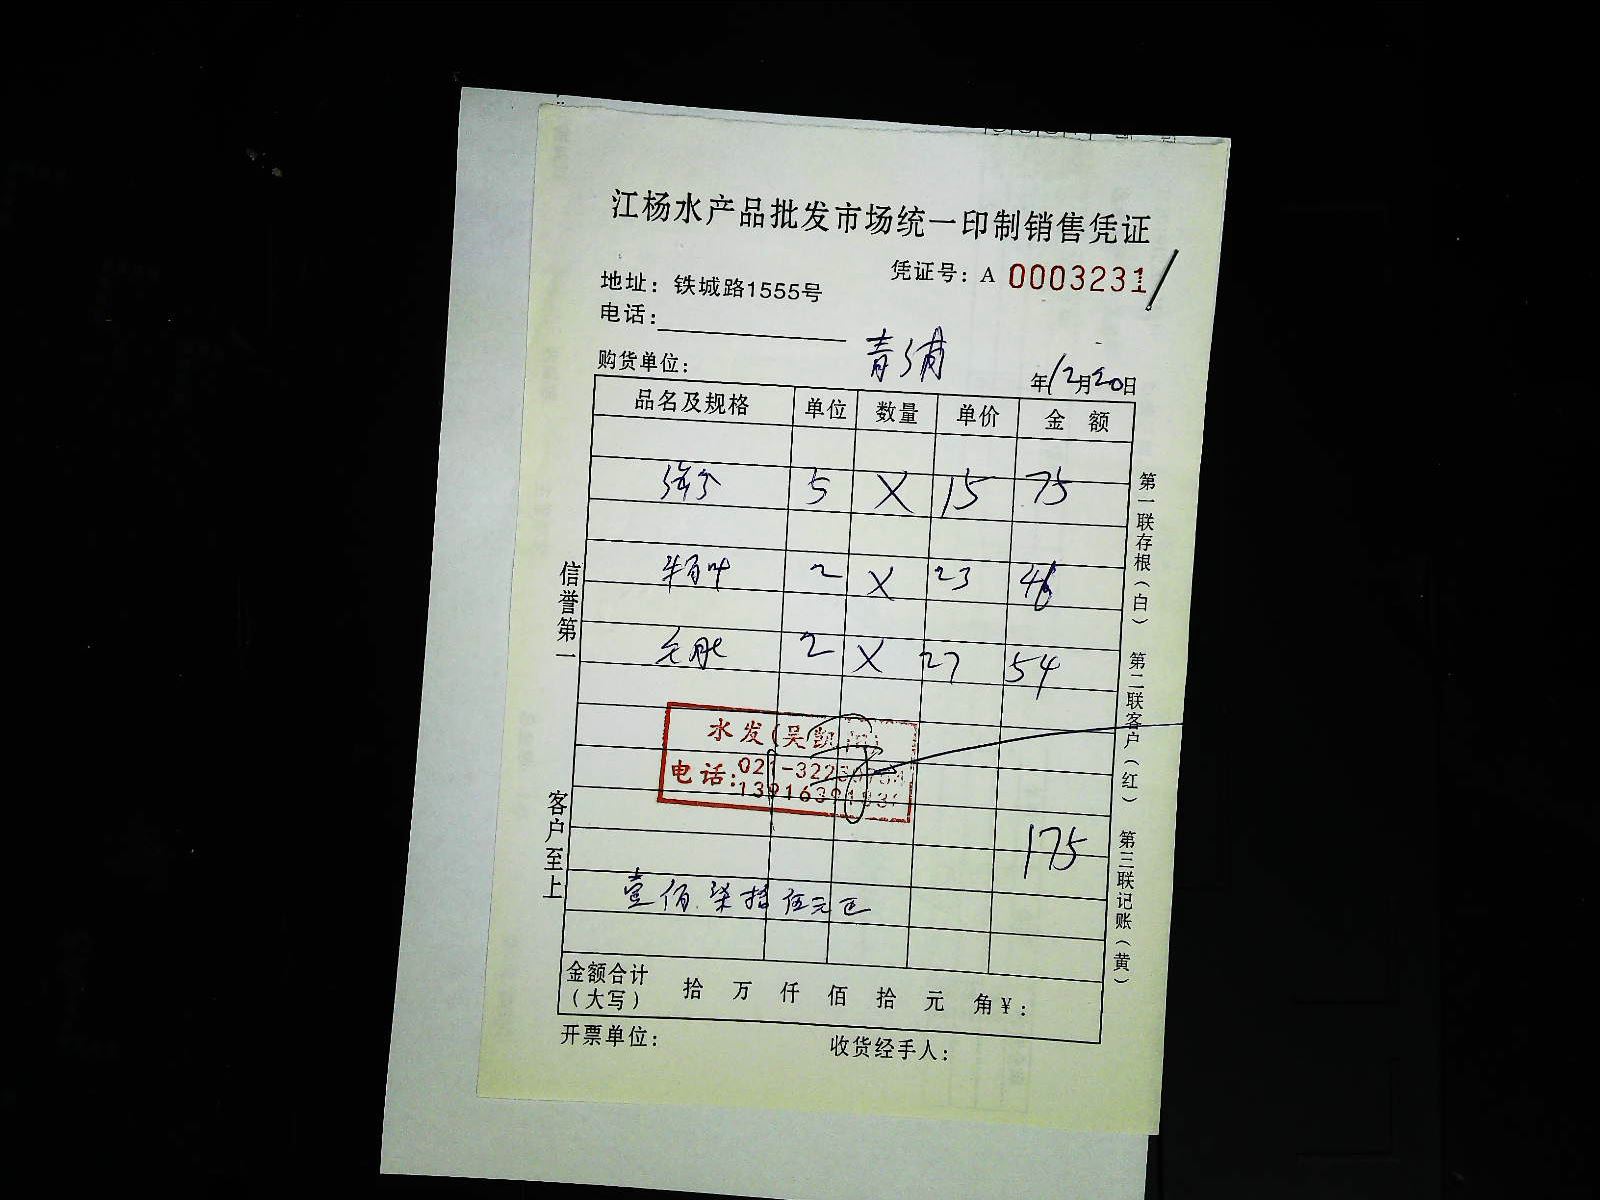 江杨水产品批发市场统一印制销售凭证
凭证号：A 0003231
地址：铁城路1555号
电话：
购货单位：青浦
年12月20日
品名及规格 单位 数量 单价 金额
5 X 15 75
牛百叶 2 X 23 46
毛肚 2 X 27 54
水发(吴凯
电话：021-322
1391639
175
壹佰柒拾伍元正
金额合计（大写） 拾 万 仟 佰 拾 元 角￥：
开票单位： 收货经手人：
信誉第一
客户至上
第一联存根（白）
第二联客户（红）
第三联记账（黄）